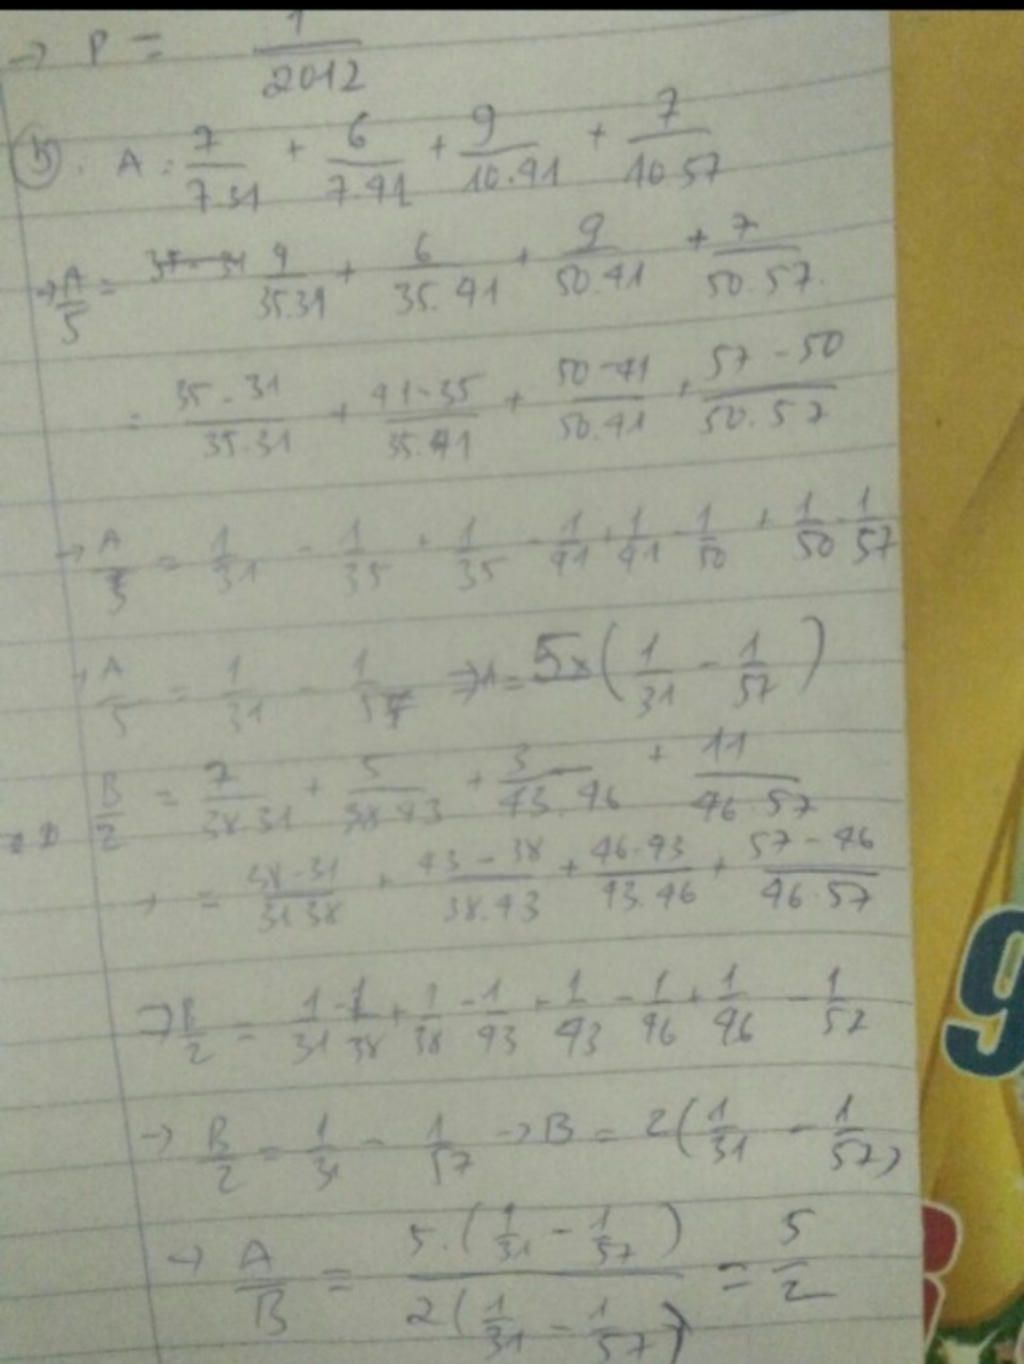 → P = 1/2012
b). A = 7/7.31 + 6/7.41 + 9/10.41 + 7/10.57
→ A/5 = 4/35.31 + 6/35.41 + 9/50.41 + 7/50.57.
= 35-31/35.31 + 41-35/35.41 + 50-41/50.41 + 57-50/50.57
→ A/5 = 1/31 - 1/35 + 1/35 - 1/41 + 1/41 - 1/50 + 1/50 - 1/57
→ A/5 = 1/31 - 1/57 ⇒ A = 5x(1/31 - 1/57)
B/2 = 7/38.31 + 5/38.43 + 3/43.46 + 11/46.57
→ = 38-31/31.38 + 43-38/38.43 + 46-43/43.46 + 57-46/46.57
⇒ B/2 = 1/31 - 1/38 + 1/38 - 1/43 + 1/43 - 1/46 + 1/46 - 1/57
→ B/2 = 1/31 - 1/57 → B = 2(1/31 - 1/57)
→ A/B = 5.(1/31 - 1/57)/2(1/31 - 1/57) = 5/2
9